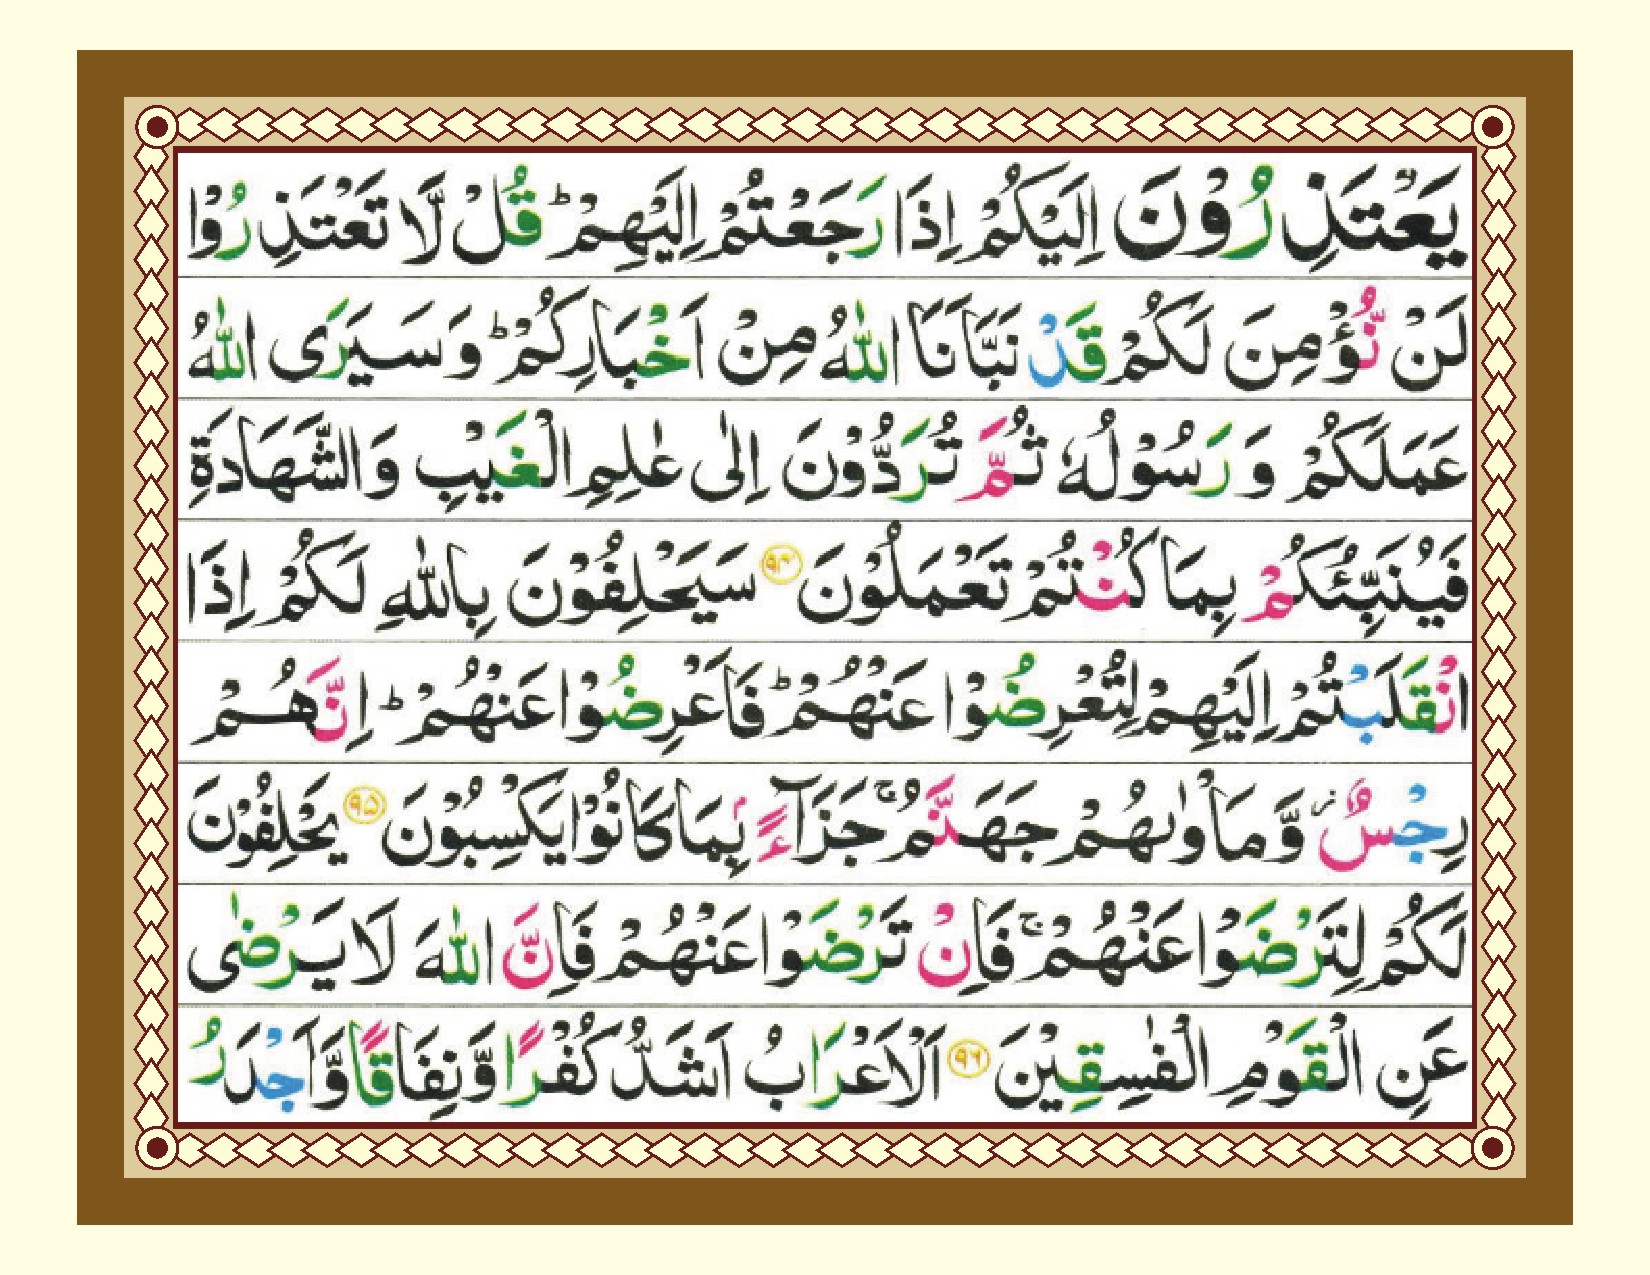 يَعْتَذِرُوْنَ اِلَيْكُمْ اِذَا رَجَعْتُمْ اِلَيْهِمْ ؕ قُلْ لَّا تَعْتَذِرُوْا
لَنْ نُّؤْمِنَ لَكُمْ قَدْ نَبَّاَنَا اللّٰهُ مِنْ اَخْبَارِكُمْ ؕ وَ سَيَرَى اللّٰهُ
عَمَلَكُمْ وَ رَسُوْلُهٗ ثُمَّ تُرَدُّوْنَ اِلٰى عٰلِمِ الْغَيْبِ وَالشَّهَادَةِ
فَيُنَبِّئُكُمْ بِمَا كُنْتُمْ تَعْمَلُوْنَ ۹۴ سَيَحْلِفُوْنَ بِاللّٰهِ لَكُمْ اِذَا
انْقَلَبْتُمْ اِلَيْهِمْ لِتُعْرِضُوْا عَنْهُمْ ؕ فَاَعْرِضُوْا عَنْهُمْ ؕ اِنَّهُمْ
رِجْسٌ ؗ وَّ مَاْوٰىهُمْ جَهَنَّمُ ۚ جَزَآءًۢ بِمَا كَانُوْا يَكْسِبُوْنَ ۹۵ يَحْلِفُوْنَ
لَكُمْ لِتَرْضَوْا عَنْهُمْ ۚ فَاِنْ تَرْضَوْا عَنْهُمْ فَاِنَّ اللّٰهَ لَا يَرْضٰى
عَنِ الْقَوْمِ الْفٰسِقِيْنَ ۹۶ اَلْاَعْرَابُ اَشَدُّ كُفْرًا وَّ نِفَاقًا وَّ اَجْدَرُ